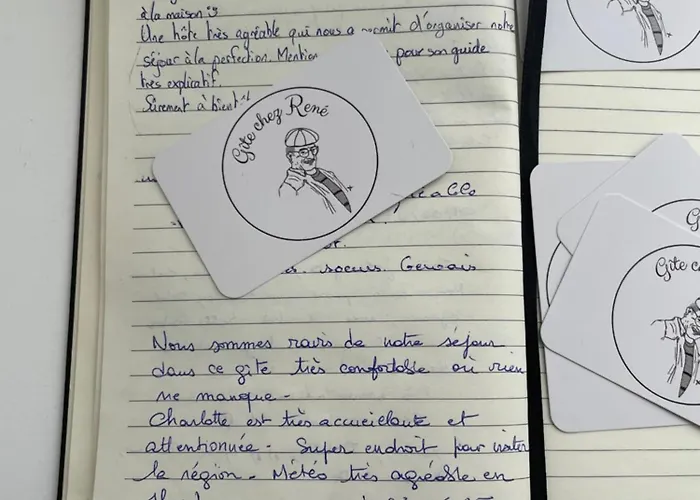 à la maison
Une hôte très agréable qui nous a permit d'organiser notre
séjour à la perfection. Mention pour son guide
très explicatif.
Sûrement à bientôt
Gîte chez René
soeurs Gervais
Nous sommes ravis de notre séjour
dans ce gîte très comfortable où rien
ne manque -
Charlotte est très accueillante et
attentionnée - Super endroit pour visiter
la région - Météo très agréable en
G
Gîte c